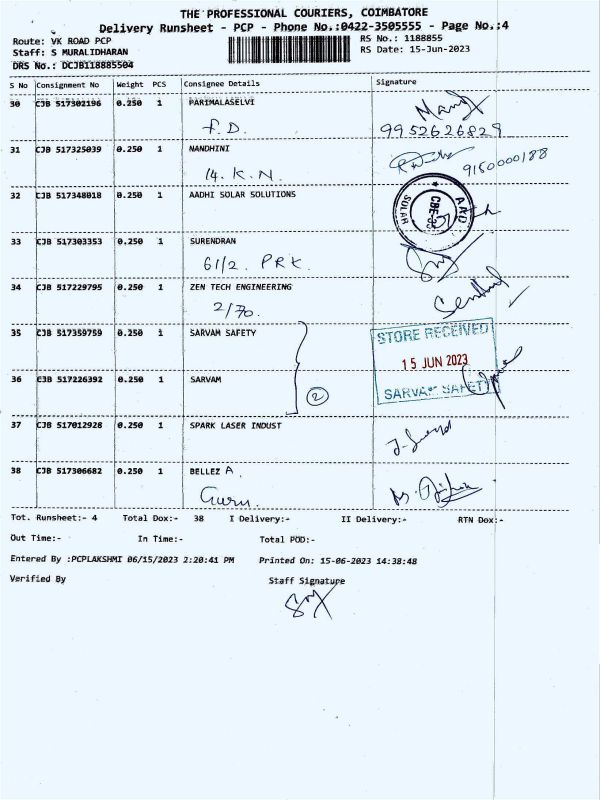 THE PROFESSIONAL COURIERS, COIMBATORE
Delivery Runsheet - PCP - Phone No.:0422-3505555 - Page No.:4
Route: VK ROAD PCP
RS No.: 1188855
Staff: S MURALIDHARAN
RS Date: 15-Jun-2023
DRS No.: DCJB118885504
S No Consignment No Weight PCS Consignee Details Signature
30 CJB 517302196 0.250 1 PARIMALASELVI
F.D. 9952626829
31 CJB 517325039 0.250 1 NANDHINI
14. K.N. 9150000188
32 CJB 517348018 0.250 1 AADHI SOLAR SOLUTIONS
SOLAR CBE-35
33 CJB 517303353 0.250 1 SURENDRAN
61/2. PRK.
34 CJB 517229795 0.250 1 ZEN TECH ENGINEERING
2/70.
35 CJB 517359759 0.250 1 SARVAM SAFETY
STORE RECEIVED
15 JUN 2023
36 CJB 517226392 0.250 1 SARVAM
SARVAM SAFETY
2
37 CJB 517012928 0.250 1 SPARK LASER INDUST
38 CJB 517306682 0.250 1 BELLEZ A.
Guru.
Tot. Runsheet:- 4 Total Dox:- 38 I Delivery:- II Delivery:- RTN Dox:-
Out Time:- In Time:- Total POD:-
Entered By :PCPLAKSHMI 06/15/2023 2:20:41 PM Printed On: 15-06-2023 14:38:48
Verified By Staff Signature